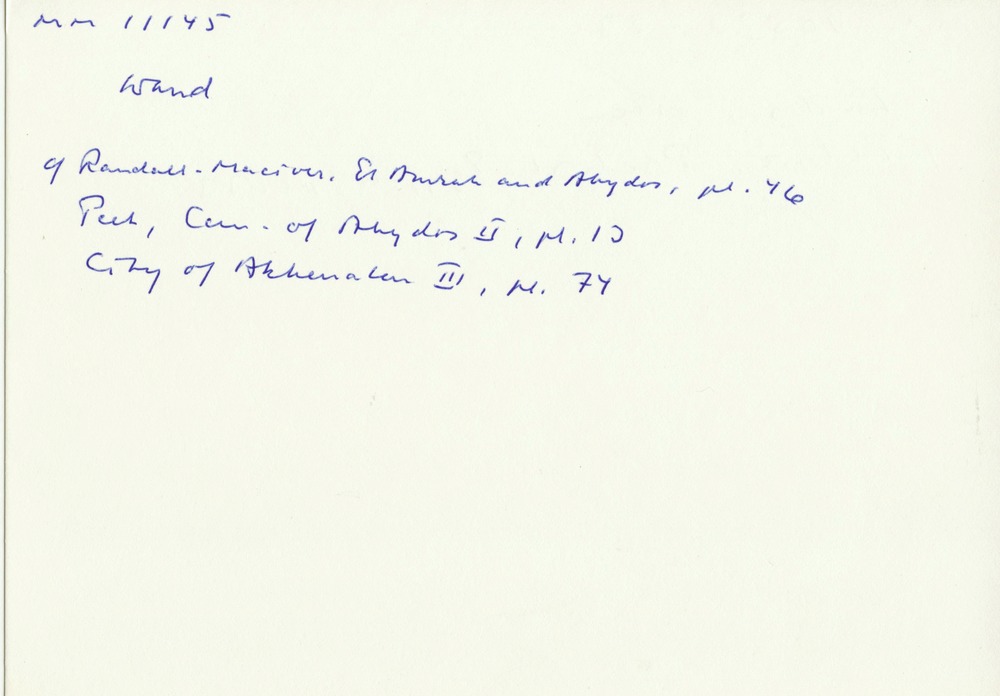 MM 11145
Wand
cf Randall-Maciver, El Amrah and Abydos, pl. 46
Peet, Cem. of Abydos II, pl. 13
City of Akhenaten III, pl. 74